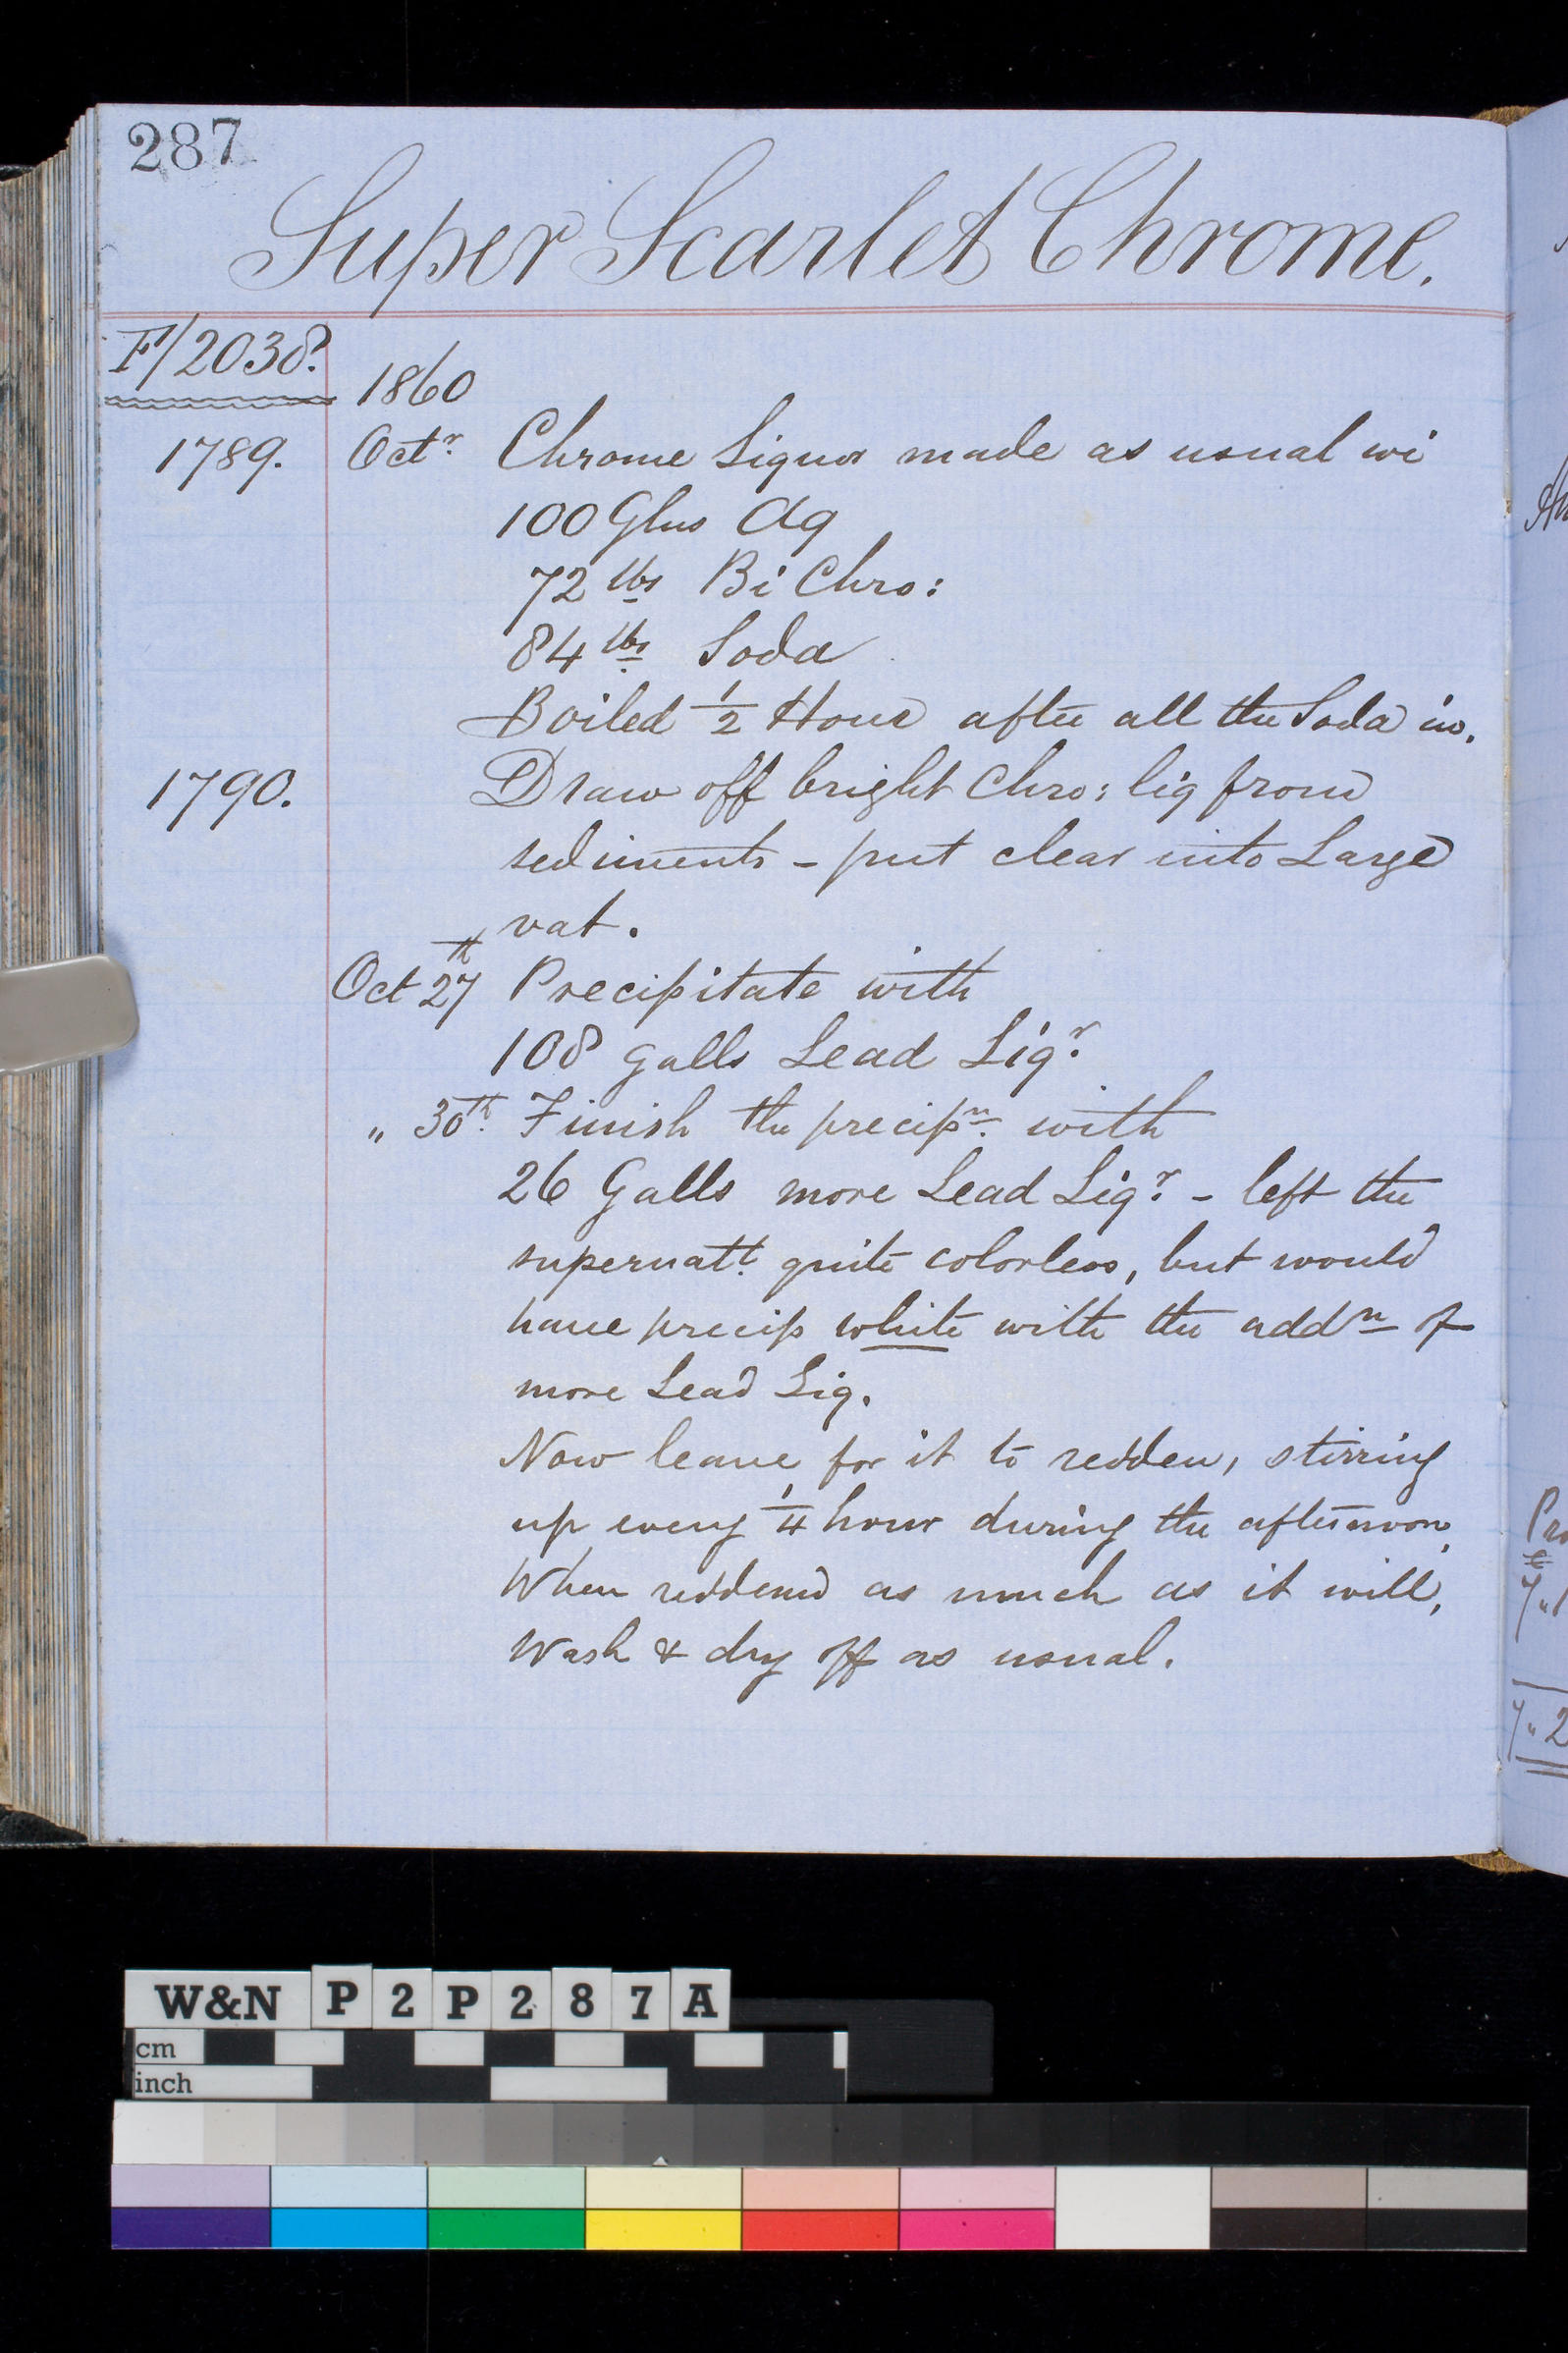 287
Super Scarlet Chrome.
F/2038.
1860
1789. Octr. Chrome Liquor made as usual wi
100 Glns Aq
72 lbs Bi Chro:
84 lbs Soda
Boiled 1/2 Hour after all the Soda in.
1790. Draw off bright Chro: liq from
sediments - put clear into Large
vat.
Oct 27th Precipitate with
108 Galls Lead Liqr.
" 30th. Finish the precipn. with
26 Galls more Lead Liqr. - left the
supernatt. quite colorless, but would
have precip white with the addn of
more Lead Liq.
Now leave for it to redden, stirring
up every 1/4 hour during the afternoon,
When reddened as much as it will,
Wash & dry off as usual.
W&N P2P287A
cm
inch